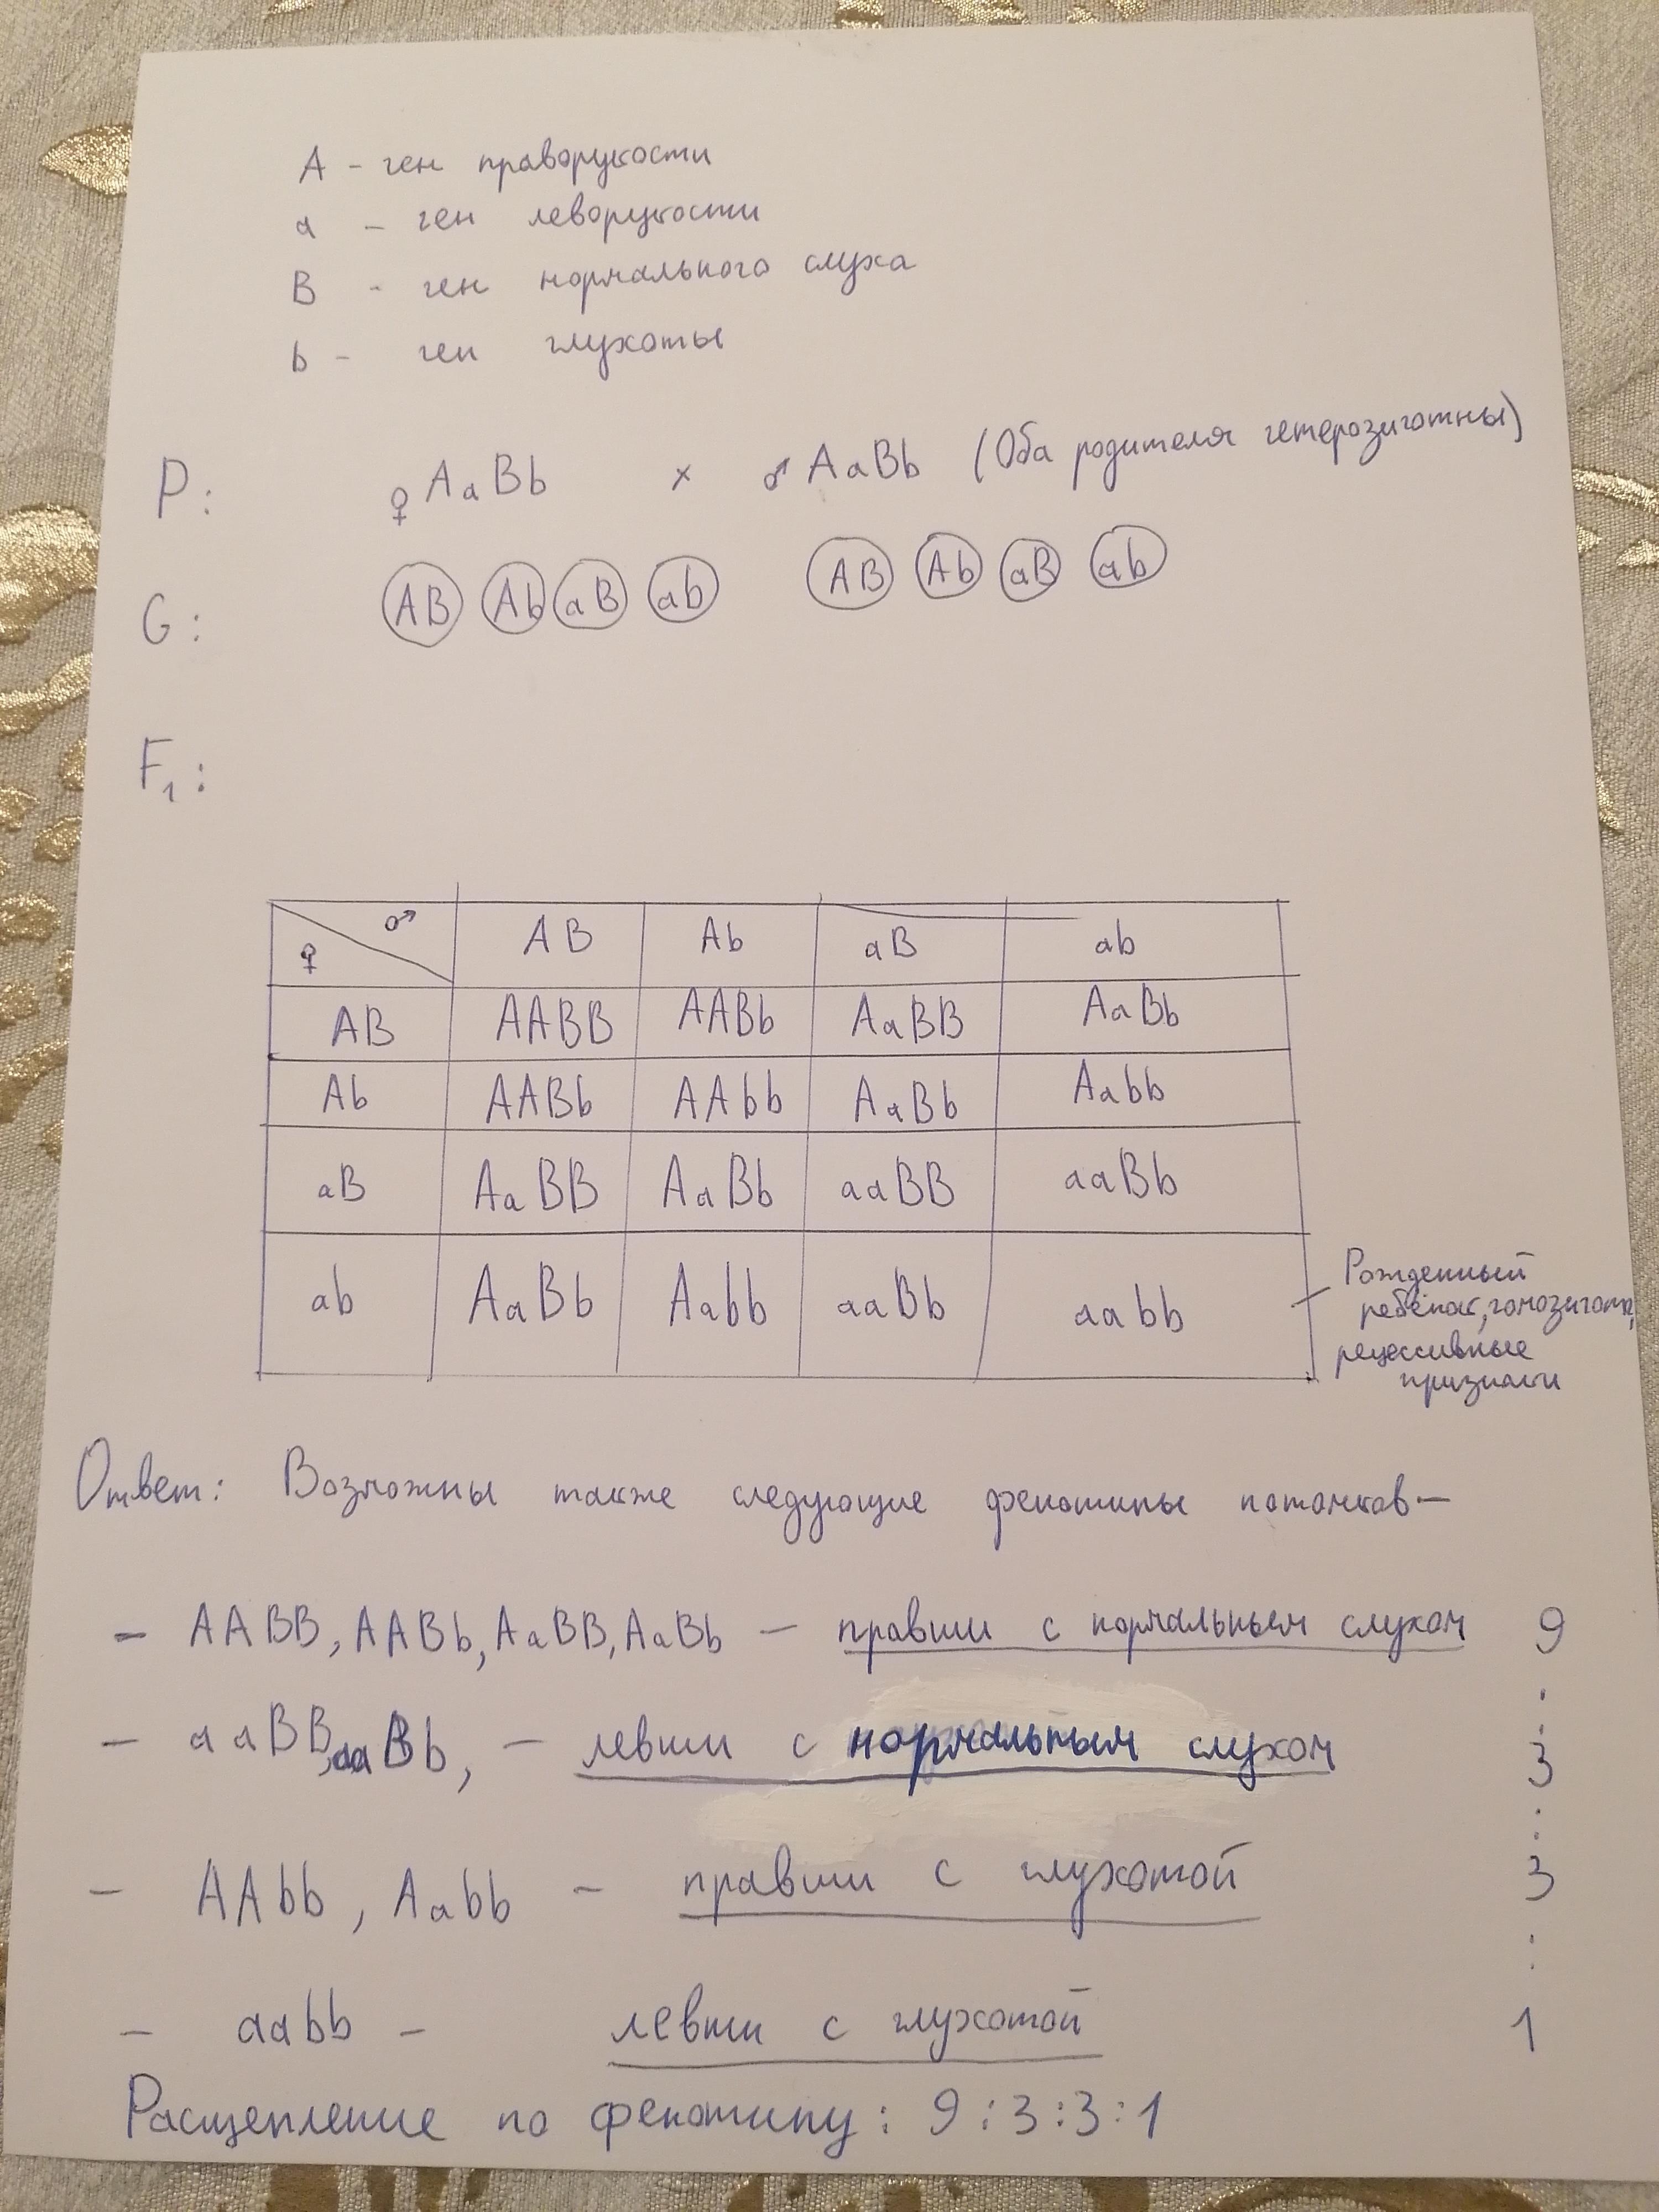 A - ген праворукости
a - ген леворукости
B - ген нормального слуха
b - ген глухоты
P: ♀ AaBb x ♂ AaBb (Оба родителя гетерозиготны)
G: AB Ab aB ab AB Ab aB ab
F1:
♀ ♂ AB Ab aB ab
AB AABB AABb AaBB AaBb
Ab AABb AAbb AaBb Aabb
aB AaBB AaBb aaBB aaBb
ab AaBb Aabb aaBb aabb
Рожденный
ребёнок, гомозигота,
рецессивные
признаки
Ответ: Возможны также следующие фенотипы потомков—
- AABB, AABb, AaBB, AaBb — правши с нормальным слухом 9
:
- aaBB, aaBb, — левши с нормальным слухом 3
:
- AAbb, Aabb - правши с глухотой 3
:
- aabb - левши с глухотой 1
Расщепление по фенотипу: 9:3:3:1